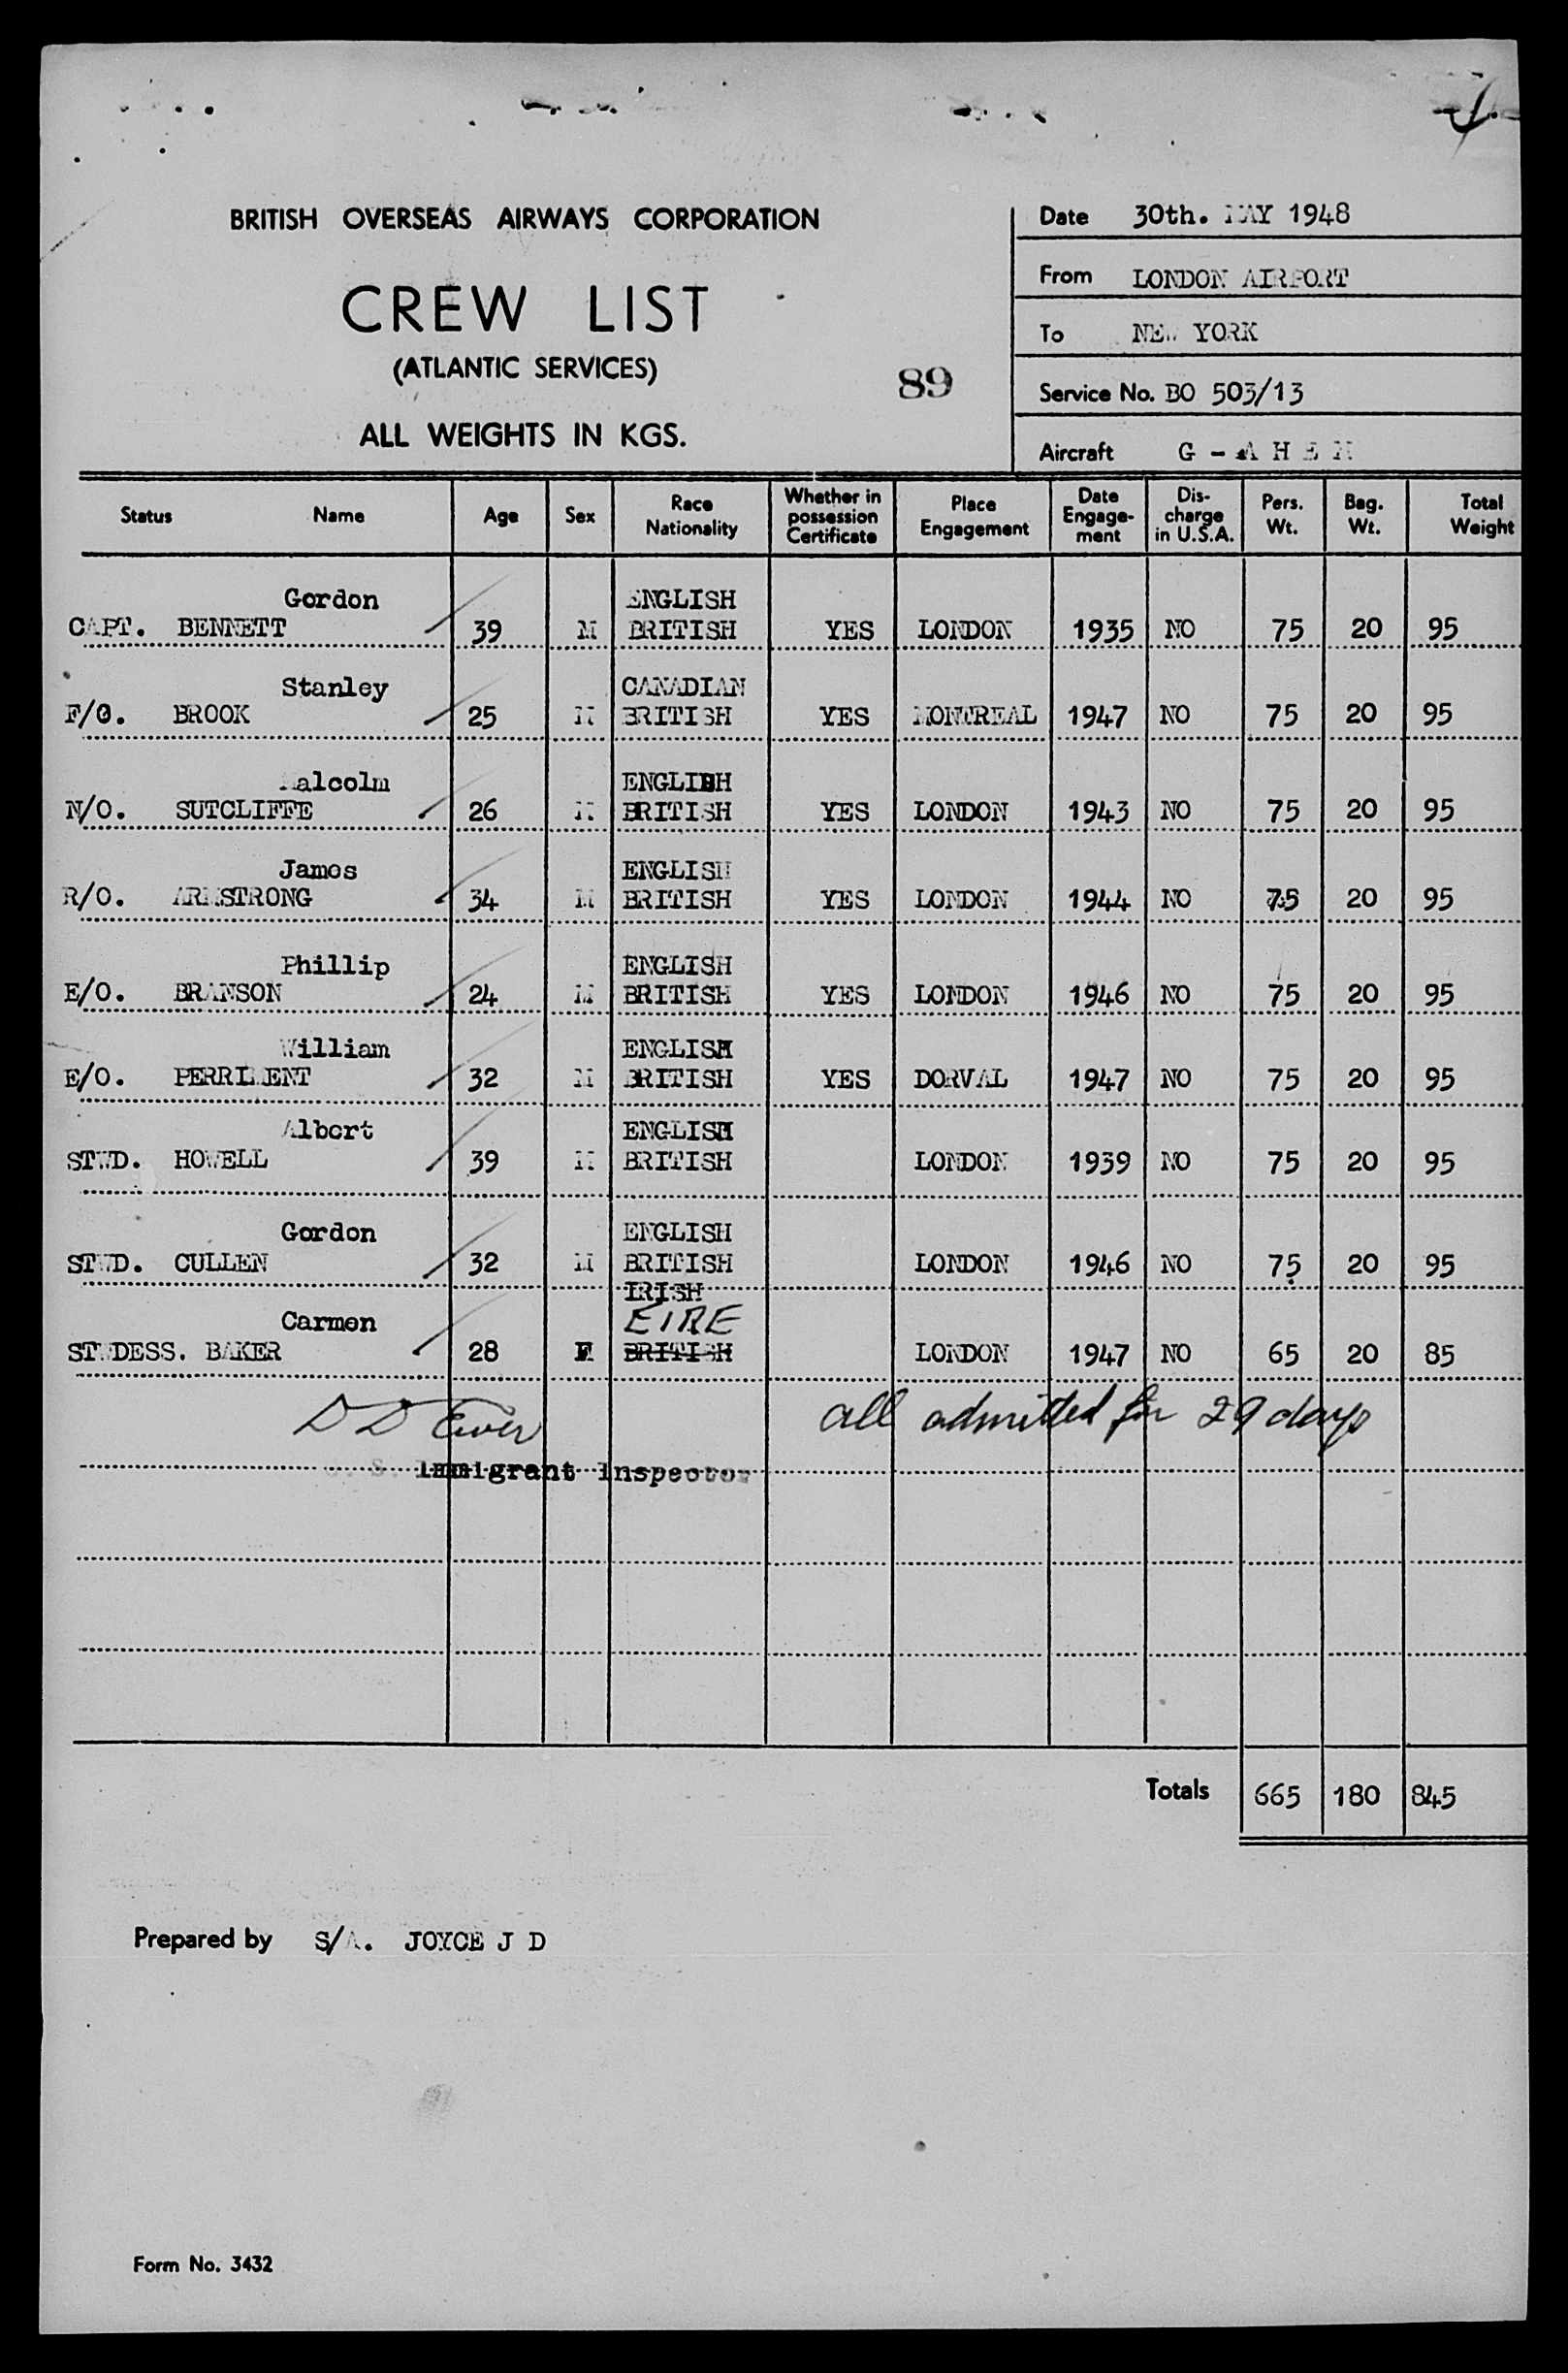 BRITISH OVERSEAS AIRWAYS CORPORATION
CREW LIST
(ATLANTIC SERVICES)
ALL WEIGHTS IN KGS.
89
Date 30th. MAY 1948
From LONDON AIRPORT
To NEW YORK
Service No. BO 503/13
Aircraft G - A H E N
Status Name Age Sex Race Nationality Whether in possession Certificate Place Engagement Date Engage-ment Dis-charge in U.S.A. Pers. Wt. Bag. Wt. Total Weight
Gordon ENGLISH
CAPT. BENNETT 39 M BRITISH YES LONDON 1935 NO 75 20 95
Stanley CANADIAN
F/O. BROOK 25 M BRITISH YES MONTREAL 1947 NO 75 20 95
Malcolm ENGLISH
N/O. SUTCLIFFE 26 M BRITISH YES LONDON 1943 NO 75 20 95
James ENGLISH
R/O. ARMSTRONG 34 M BRITISH YES LONDON 1944 NO 75 20 95
Phillip ENGLISH
E/O. BRANSON 24 M BRITISH YES LONDON 1946 NO 75 20 95
William ENGLISH
E/O. PERRIMENT 32 M BRITISH YES DORVAL 1947 NO 75 20 95
Albert ENGLISH
STWD. HOWELL 39 M BRITISH LONDON 1939 NO 75 20 95
Gordon ENGLISH
STWD. CULLEN 32 M BRITISH LONDON 1946 NO 75 20 95
IRISH
Carmen EIRE
STWDESS. BAKER 28 F BRITISH LONDON 1947 NO 65 20 85
D D Ewer all admitted for 29 days
U. S. Immigrant Inspector
Totals 665 180 845
Prepared by S/A. JOYCE J D
Form No. 3432